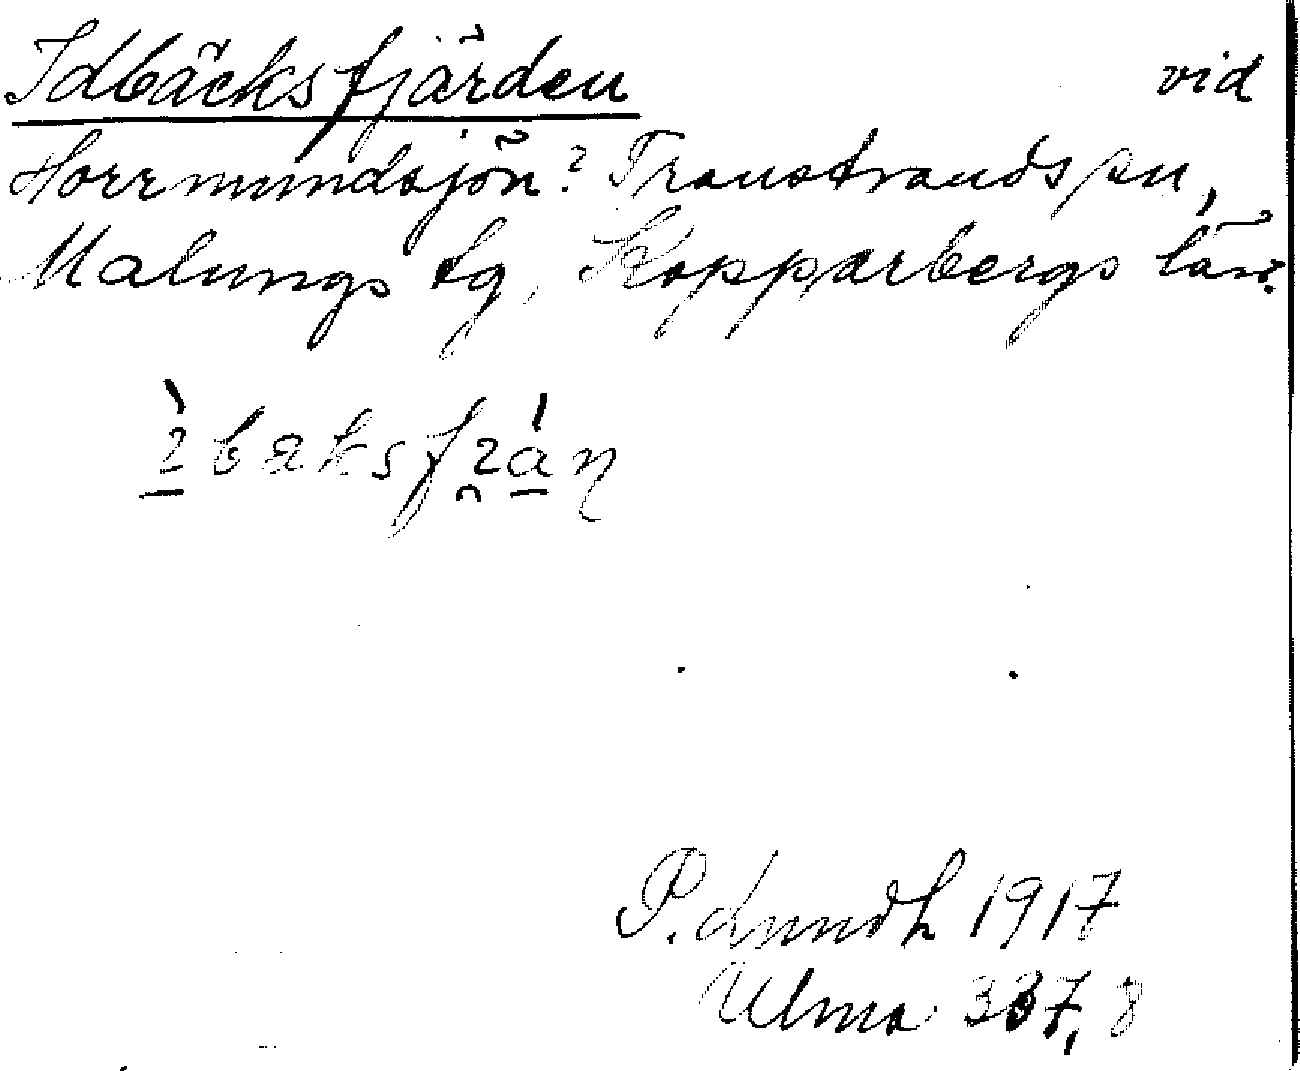 Idbäcksfjärden vid
Horrmundsjön? Transtrands sn,
Malungs tg, Kopparbergs län.
P. Lundh 1917
Ulma 337, 8